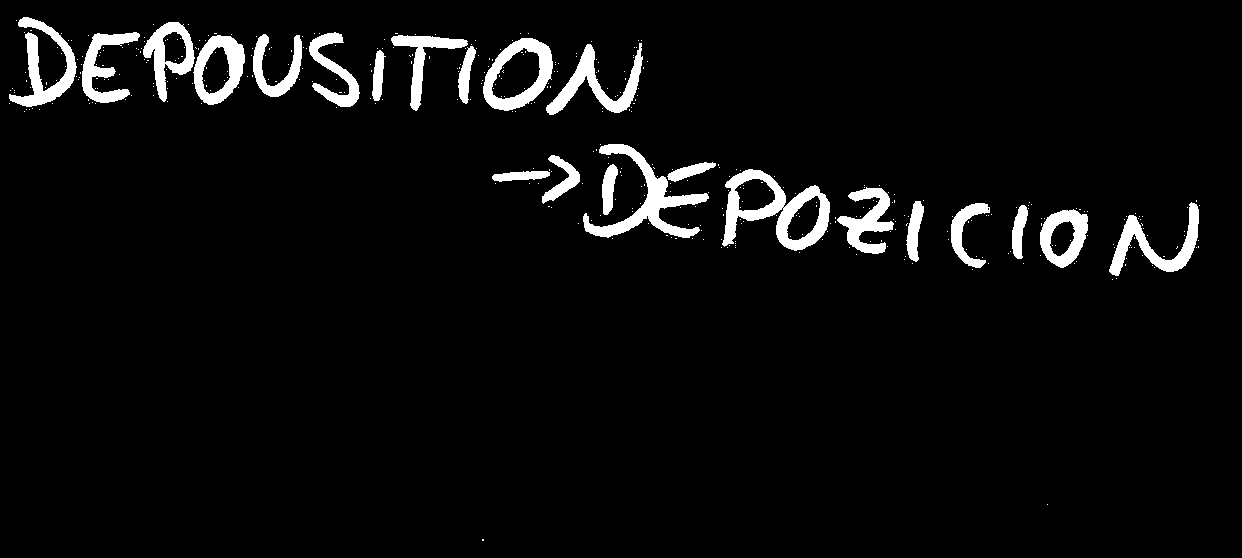 DEPOUSITION
→DEPOZICION